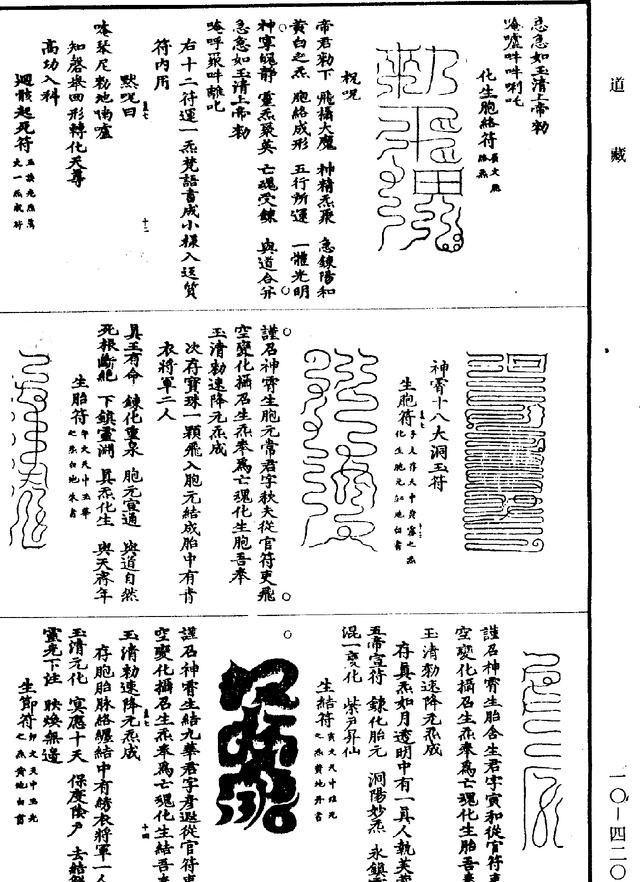 道藏
急急如玉清上帝勑
唵嚧吽吽唎吒
化生胞絡符
祝呪
帝君勑下 飛攝大魔 神精炁聚 急鍊陽和
黄白之炁 胞絡成形 五行所運 一體光明
神寧魄静 靈炁聚英 亡魂受鍊 與道合并
急急如玉清上帝勑
唵呼吽離叱
右十二符運一炁梵語書成小樣入送質
符内用
默呪曰
唵琴尼勑地喃嚧
知磬舉 形轉化天尊
高功入科
迴骸起死符
十三
神霄十八大洞玉符
生胞符
化生胞元 地白書
謹召神霄生胞元常君字秋夫從官符吏飛
空變化攝召生炁奉爲亡魂化生胞吾奉
玉清勑速降元炁成
次存寳珠一顆飛入胞元結成胎中有青
衣將軍二人
真王有命 鍊化重泉 胞元宣通 與道自然
死根斷絶 下鎮靈淵 真炁化生 與天齊年
生胎符
之炁白地朱書
謹召神霄生胎含生君字寅和從官符吏
空變化攝召生炁奉爲亡魂化生胎吾奉
玉清勑速降元炁成
存真炁如月透明中有一真人執芙
五帝宣符 鍊化胎元 洞陽妙炁 永鎮
混一變化 紫戸昇仙
生結符
之炁黄地丹書
謹召神霄生結九華君字彦遐從官符吏
空變化攝召生炁奉爲亡魂化生結吾奉
玉清勑速降元炁成
十四
存胞胎脉絡纏結中有綉衣將軍一人
玉清元化 寞應十天 保度陰尸 去結
靈光下注 映煥無邊
生節符
之炁黄地白書
一〇—四二〇